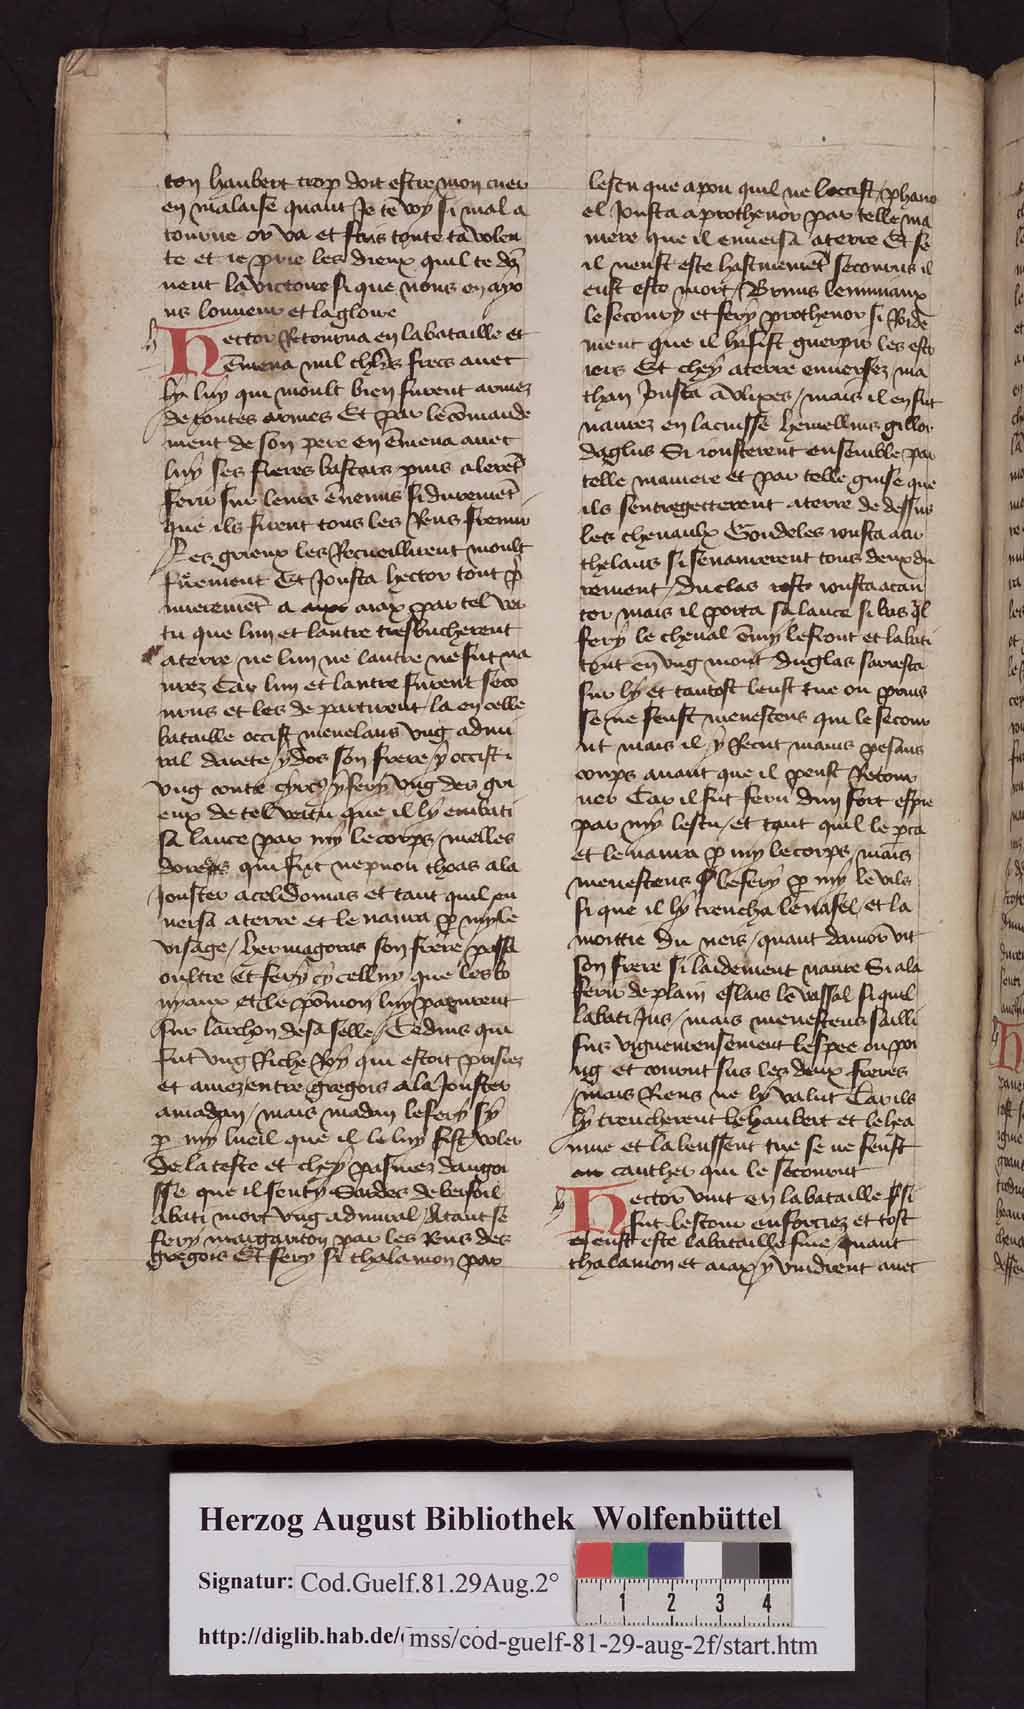 ton haubert trop doit estre mon cuer
en malaise quant Je te voy si mal a
tourne or va et fais toute ta volen
te et ie prie les dieux quil te dõ
nent la victoire si que nous en ayo
ns lonneur et la gloire
Hector Retourna en la bataille et
ẽmena mil chlrs frecs avec
luy qui moult bien furent armez
de toutes armes Et par le cõmande
ment de son pere en ẽmena avec
luy ses freres bastars puis alerẽt
ferir sur leurs ẽnemis si duremẽt
que ils firent tous les Rens fremir
Les grieux les Recueillirent moult
fieremẽt Et Jousta hector tout p̃
mieremẽt a aiax par tel ver
tu que lun et lautre tresbucherent
a terre ne lun ne lautre ne fut na
vrez Car lun et lautre furent seco
urus et les de partirent la en celle
bataille occist menelaus vng admi
ral darete ydos son frere y occist i
vng conte y fery vng des gri
eux de tel vertu que il ly embati
sa lance par my le corps melles
dorepes qui fut nepuou thoas ala
Jouster a celdomas et tant quil en
versa a terre et le navra p my le
visage / hermagoras son frere passa
oultre Et fery cy celluy que les bo
yaux et le põmon luy parurent
sur larchon de sa selle / Cedius qui
fut vng Riche Roy qui estoit prisiez
et amez entre gregois ala Jouster
amadan / mais madan le fery sy
p my lueil que il le luy fist voler
de la teste et chey pasmez dangoi
sse que il senty Sardes de
abati mort vng admiral / Atant se
fery margariton par les Rens des
gregois Et fery si thalamon par
lescu que a pou quil ne loccist / phano
el Jousta a prothenor par telle ma
niere que il enversa a terre Et se
il neust este hastivemẽt secourus il
eust este mort / Brunus
le secoury et fery prothenor si Ride
ment que il luy fist guerpir les estr
iers Et chey a terre enversez ma
than Jousta a vlixes / mais il en fut
navrez en la cuisse hemellius gillor
daglus Si iousterent ensemble par
telle maniere et par telle guise que
ils sentregetterent a terre de dessus
les chevaulx Gondeles iousta a ar
thelaus si senavrerent tous deux du
rement / duclas iousta a can
tor mais il porta sa lance si bas q̃l
fery le cheval ẽmy le front et labati
tout en vng mont duglas sarresta
sur ly et tantost leust tue ou prins
se ne feust menesteus qui le secour
ut mais il y Recut mains pesans
coups avant que il peust Retour
ner Car il fut feru dun fort espie
par my lescu / et tant quil le pca
et le navra p my le corps mais
menesteus le fery p my le vis
si que il ly trencha le nasel / et la
moittie du neis / quant damor vit
son frere si laidement navre Si ala
ferir de plain eslais le vassal si quil
labati Jus / mais menesteus sailli
sus vigueureusement lespee ou poi
ng et courut sus les deux freres
/ mais Riens ne ly valut Car ils
ly trencherent le haubert et le hea
ume et la leussent tue se ne feust
canther qui le secourut
Hector vint en la bataille / si
fut lestour enforciez et tost
eust este la bataille finé / quant
thalamon et aiax y vindrent avec
Herzog August Bibliothek Wolfenbüttel
Signatur: Cod.Guelf.81.29Aug.2°
1 2 3 4
http://diglib.hab.de/mss/cod-guelf-81-29-aug-2f/start.htm